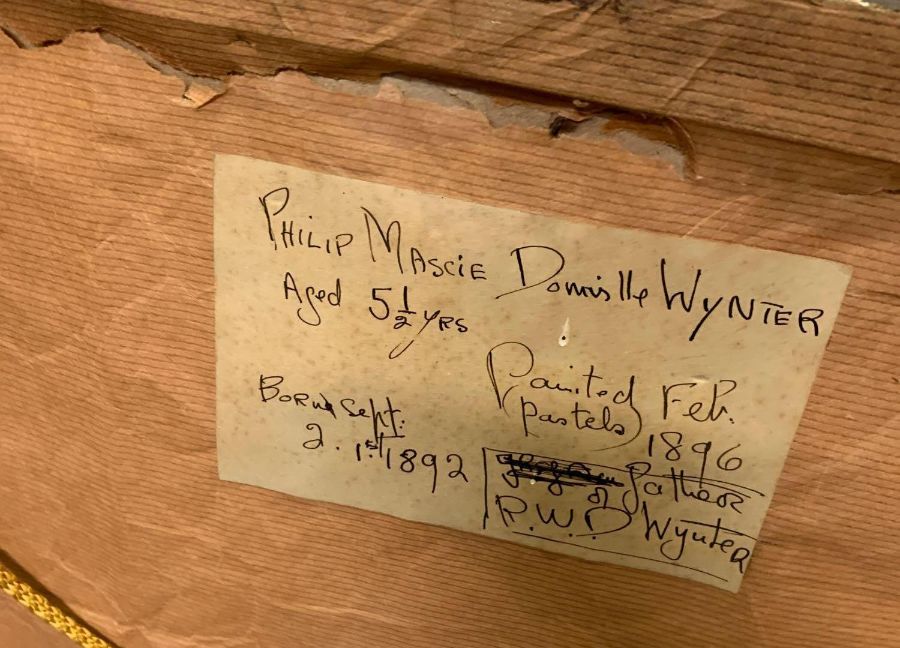 PHILIP MASCIE Domville WYNTER
Aged 5 1/2 YRS
Painted Feb.
(pastels) 1896
BORN Sept.
2. 1st/1892
of Father
P.W.D Wynter